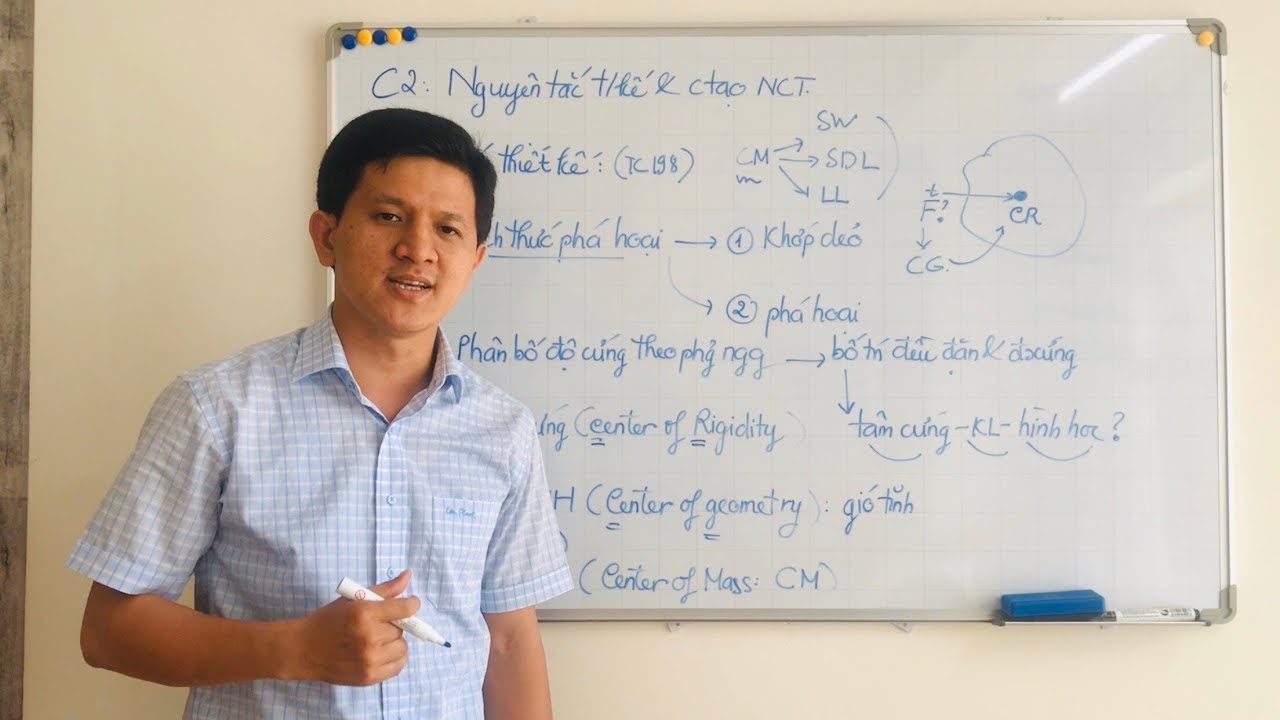 C2: Nguyên tắc t/kế & ctạo NCT.
thiết kế: (TC 198)
CM
m
SW
SDL
LL
thức phá hoại → ① Khớp dẻo
② phá hoại
t
F?
CR
CG.
Phân bố độ cứng theo phg ngg → bố trí đều đặn & đxứng
tâm cứng - KL - hình học?
ứng (center of Rigidity)
H (Center of geometry): gió tĩnh
(Center of Mass: CM)